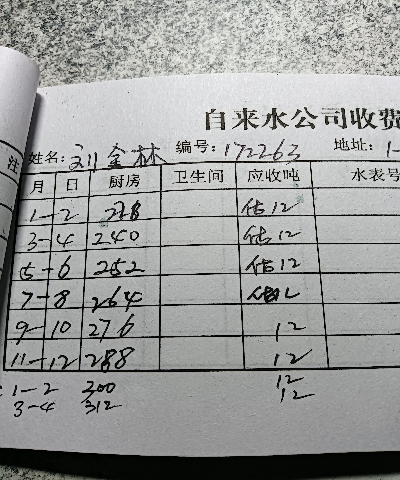 自来水公司收费
姓名: 刘金林 编号: 172263 地址: 1-
注 月 日 厨房 卫生间 应收吨 水表号
1-2 228 估12
3-4 240 估12
5-6 252 估12
7-8 264 估12
9-10 276 12
11-12 288 12
1-2 300 12
3-4 312 12